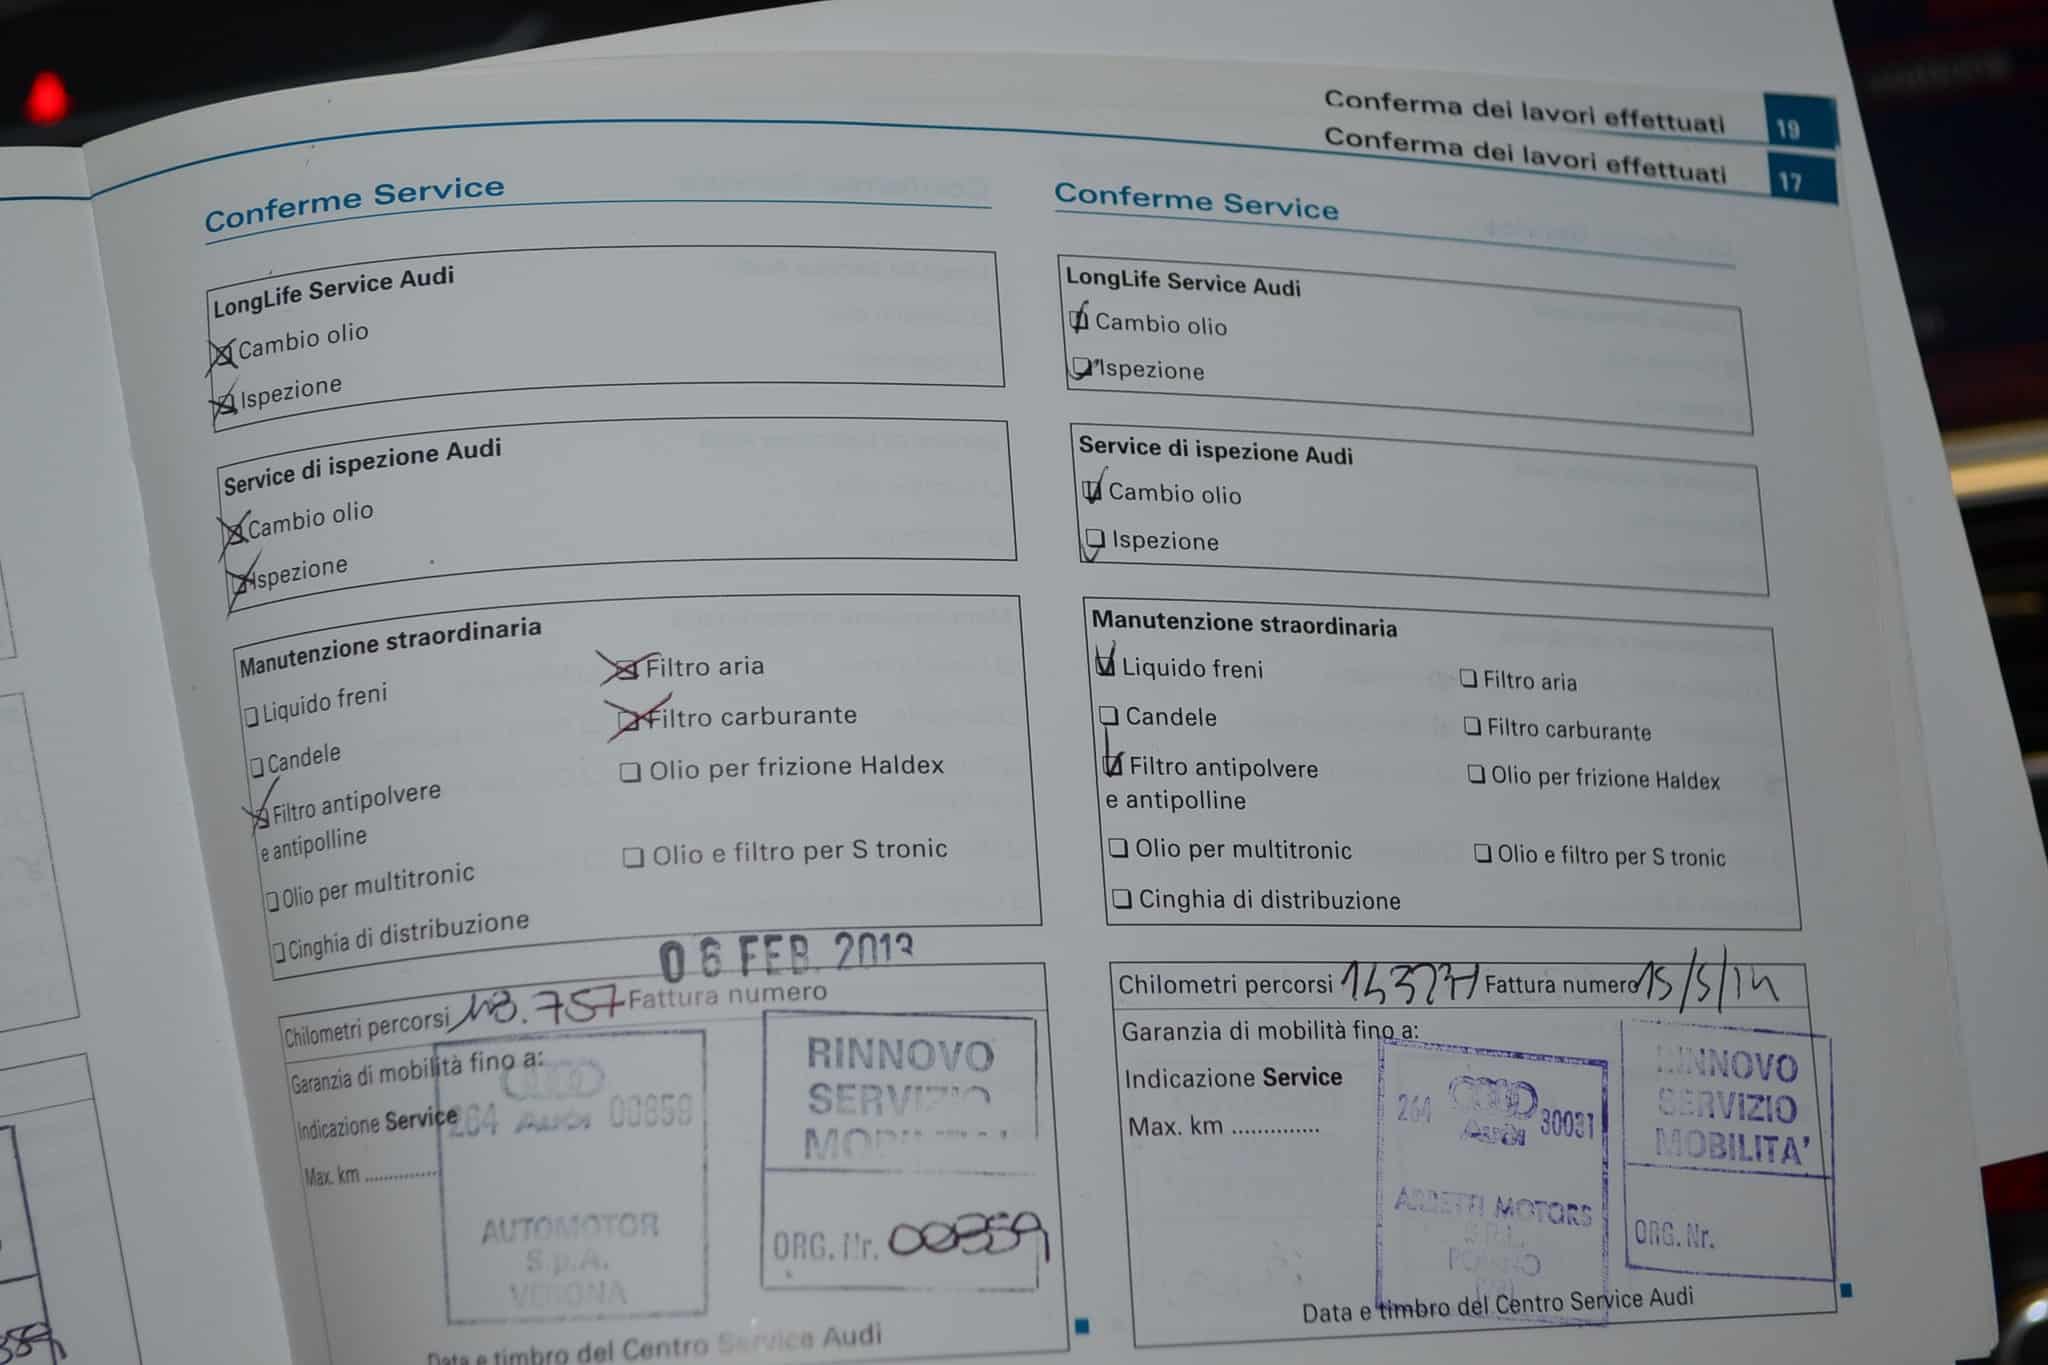 Conferma dei lavori effettuati 19
Conferma dei lavori effettuati 17
Conferme Service
LongLife Service Audi
Cambio olio
Ispezione
Service di ispezione Audi
Cambio olio
Ispezione
Manutenzione straordinaria
Liquido freni
Filtro aria
Candele
Filtro carburante
Filtro antipolvere
e antipolline
Olio per frizione Haldex
Olio per multitronic
Olio e filtro per S tronic
Cinghia di distribuzione
06 FEB. 2013
Chilometri percorsi .757 Fattura numero
Garanzia di mobilità fino a:
Indicazione Service
Max. km ..............
264 Audi 00859
AUTOMOTOR
S.p.A.
VERONA
RINNOVO
SERVIZIO
ORG. Nr. 00859
Data e timbro del Centro Service Audi
Conferme Service
LongLife Service Audi
Cambio olio
Ispezione
Service di ispezione Audi
Cambio olio
Ispezione
Manutenzione straordinaria
Liquido freni
Filtro aria
Candele
Filtro carburante
Filtro antipolvere
e antipolline
Olio per frizione Haldex
Olio per multitronic
Olio e filtro per S tronic
Cinghia di distribuzione
Chilometri percorsi Fattura numero 15/5/14
Garanzia di mobilità fino a:
Indicazione Service
Max. km ..............
264 Audi 30031
MOTORS
RINNOVO
SERVIZIO
MOBILITA'
ORG. Nr.
Data e timbro del Centro Service Audi